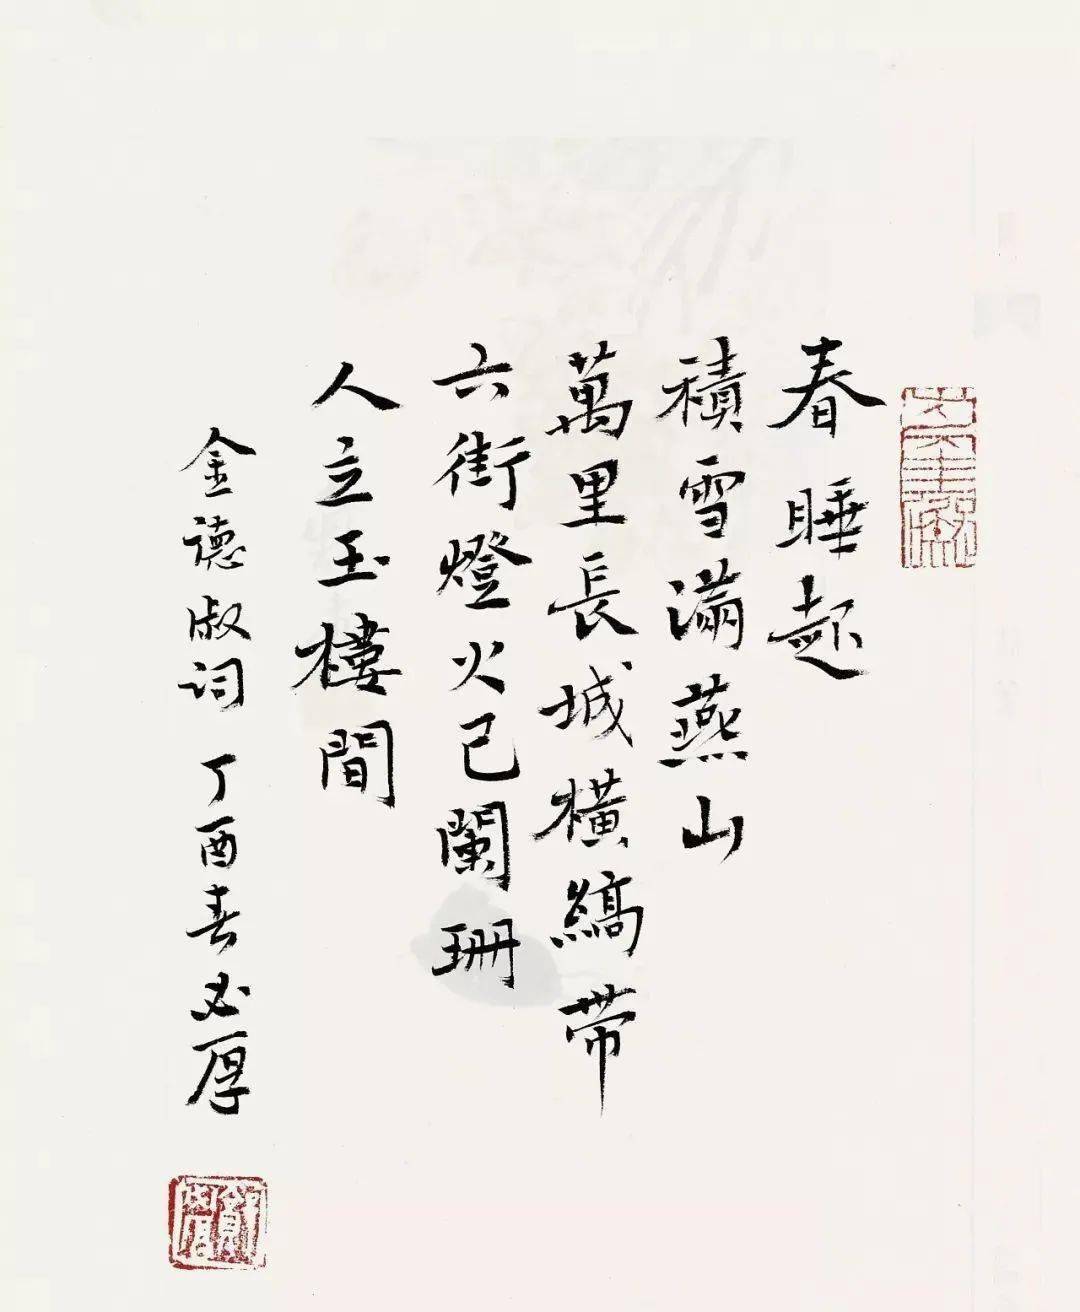 春睡起
積雪滿燕山
萬里長城橫縞帶
六街燈火已闌珊
人立玉樓間
金德淑词 丁酉春 必厚